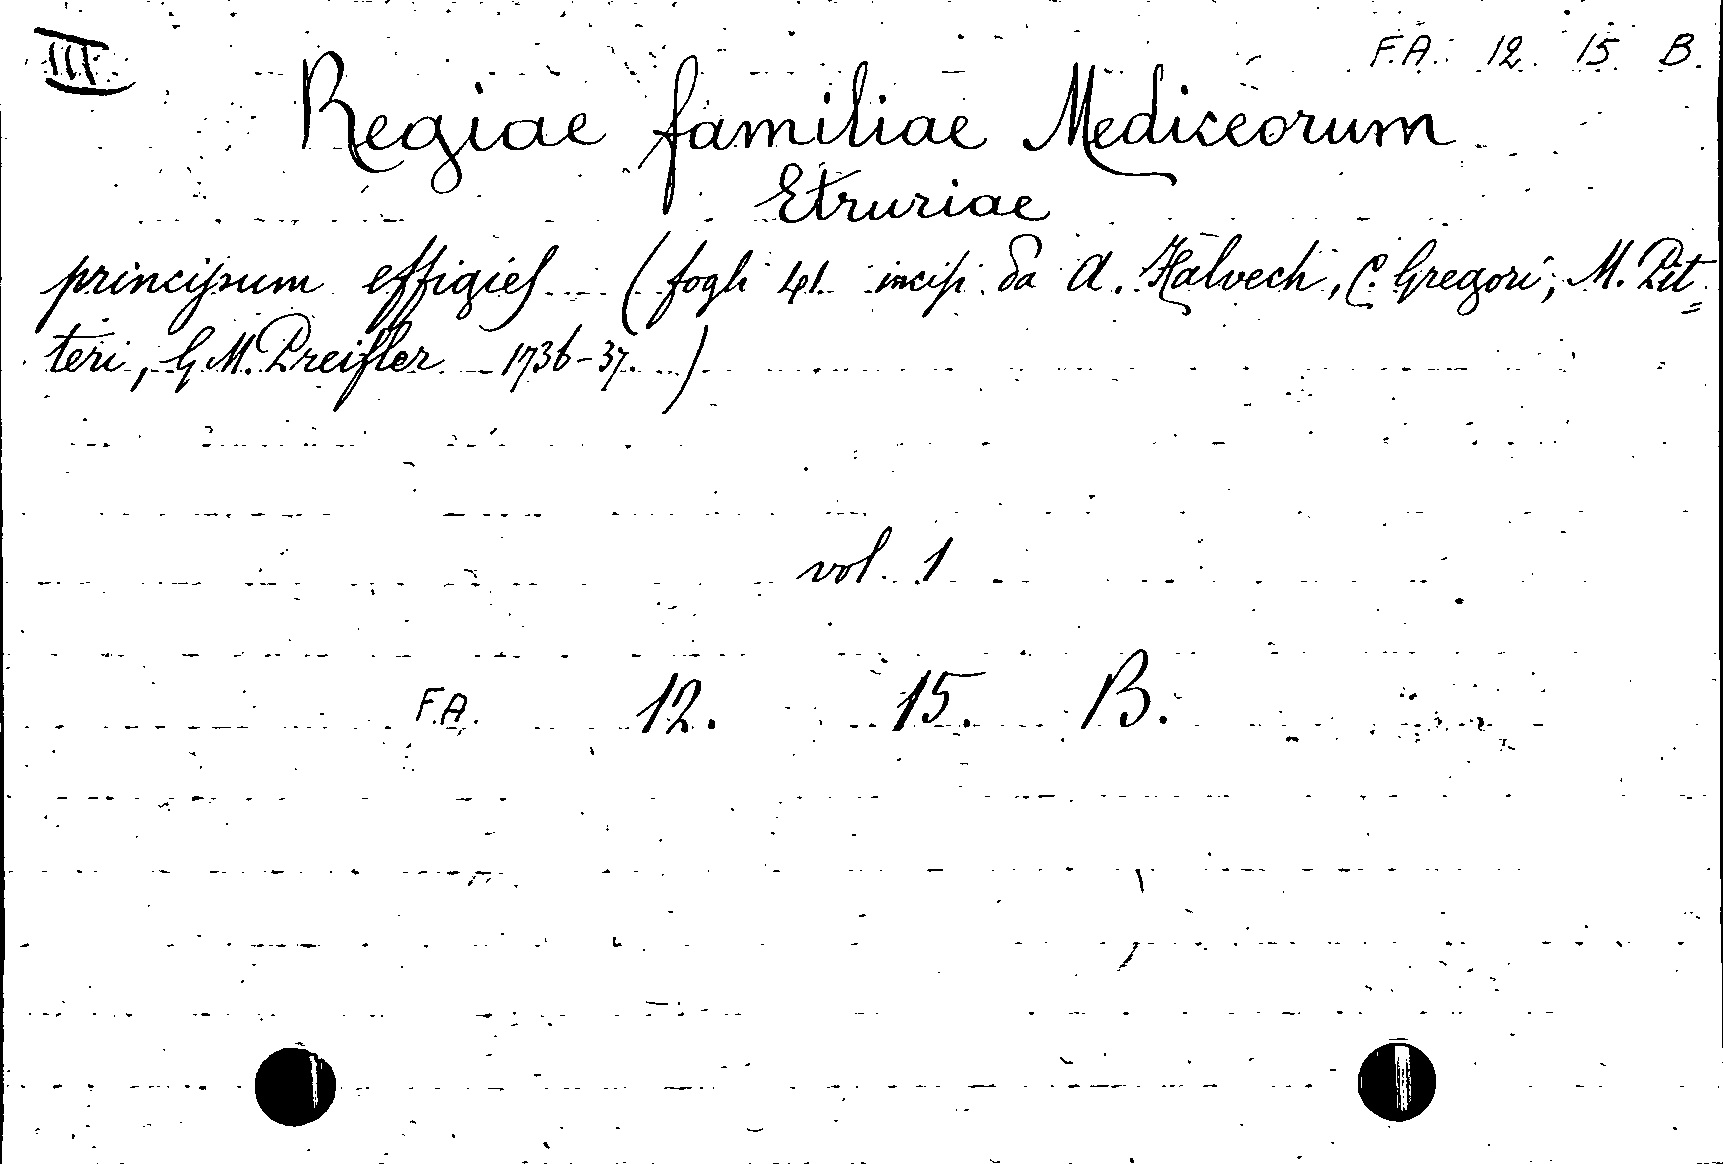 III
F.A. 12. 15. B.
Regiae familiae Mediceorum
Etruriae
principum effigies (fogli 41 incisi da A. Halvech, C. Gregori, M. Pit=
teri, G. M. Preisler 1736-37.)
vol. 1
F.A. 12. 15. B.